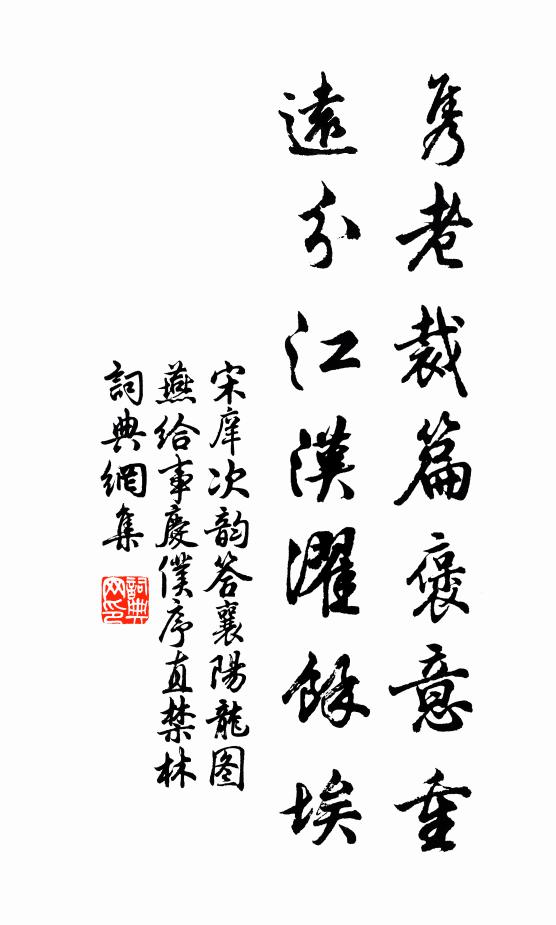 雋老裁篇褒意重
遠分江漢濯餘埃
宋庠次韵答襄陽龍图
燕给事慶僕序直禁林
詞典網集
詞典
网印